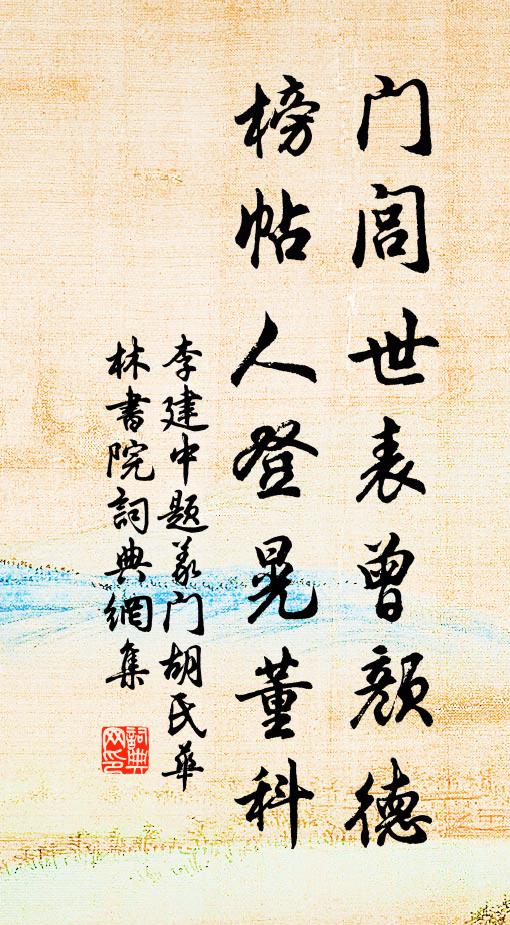 门闾世表曾颜德
榜帖人登晁董科
李建中题义门胡氏华
林书院詞典網集
詞典网印